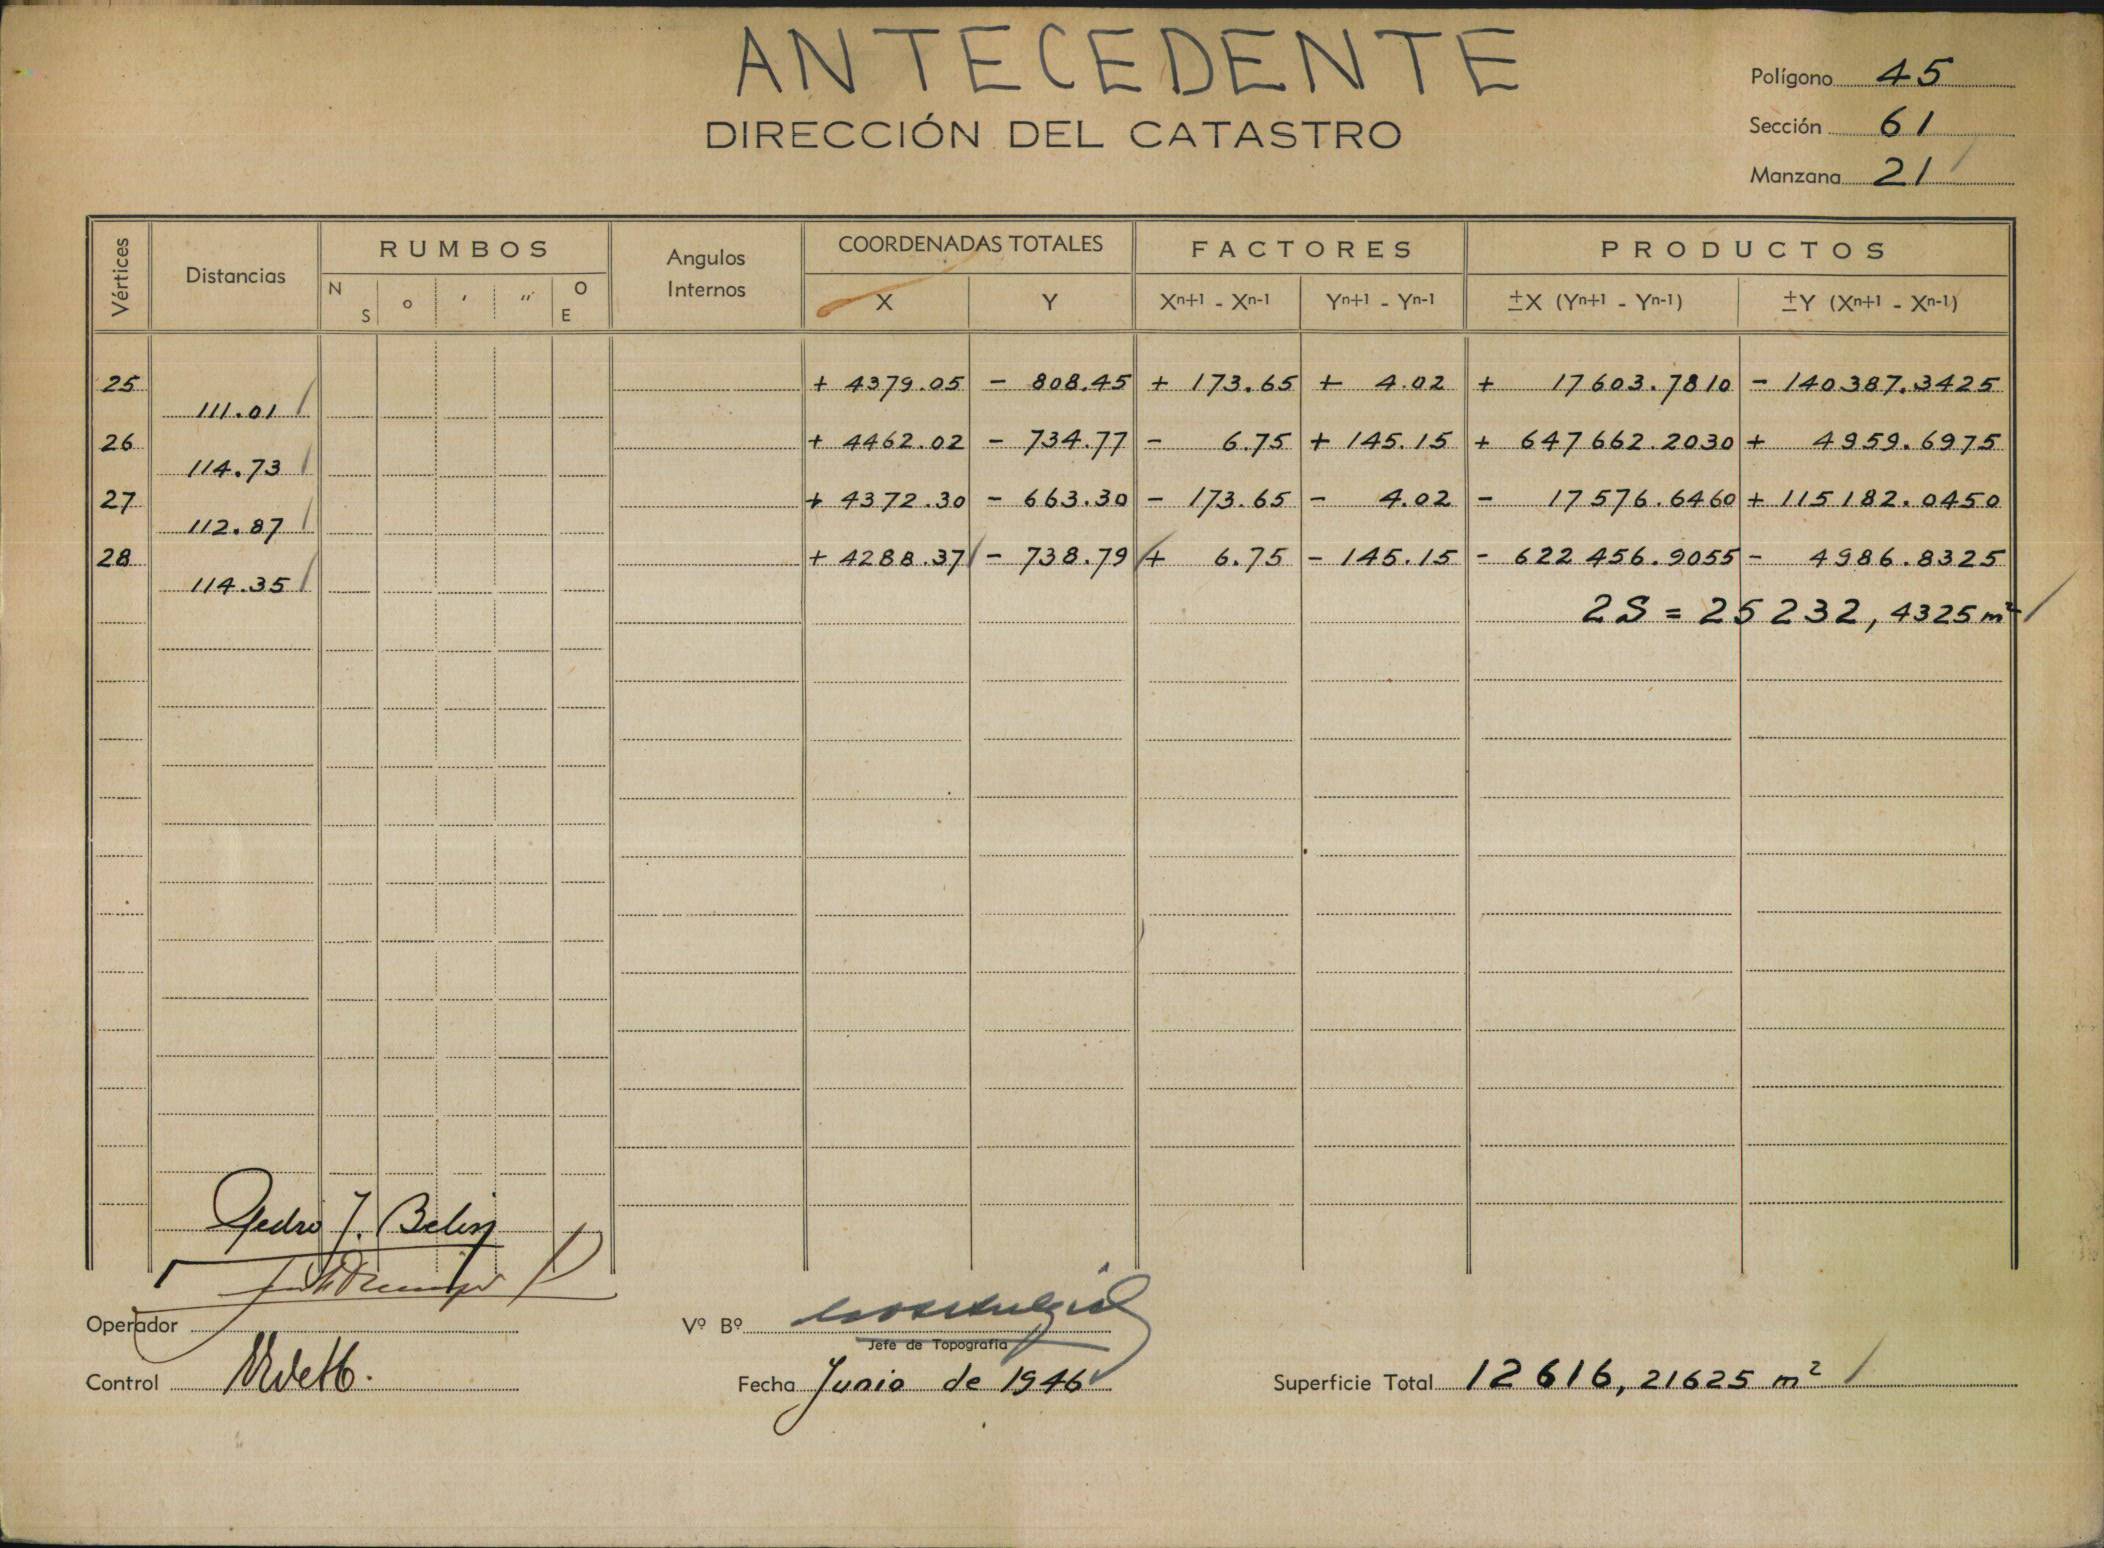 ANTECEDENTE
DIRECCIÓN DEL CATASTRO
Polígono 45
Sección 61
Manzana 21
Vértices Distancias RUMBOS Angulos Internos COORDENADAS TOTALES FACTORES PRODUCTOS
N S o ' " O E X Y Xn+1 - Xn-1 Yn+1 - Yn-1 ±X (Yn+1 - Yn-1) ±Y (Xn+1 - Xn-1)
25 + 4379.05 - 808.45 + 173.65 + 4.02 + 17603.7810 - 140387.3425
111.01
26 + 4462.02 - 734.77 - 6.75 + 145.15 + 647662.2030 + 4959.6975
114.73
27 + 4372.30 - 663.30 - 173.65 - 4.02 - 17576.6460 + 115182.0450
112.87
28 + 4288.37 - 738.79 + 6.75 - 145.15 - 622456.9055 - 4986.8325
114.35
2S = 25232,4325 m²
Pedro J.
Operador
Vº Bº
Jefe de Topografía
Control
Fecha Junio de 1946
Superficie Total 12616,21625 m²